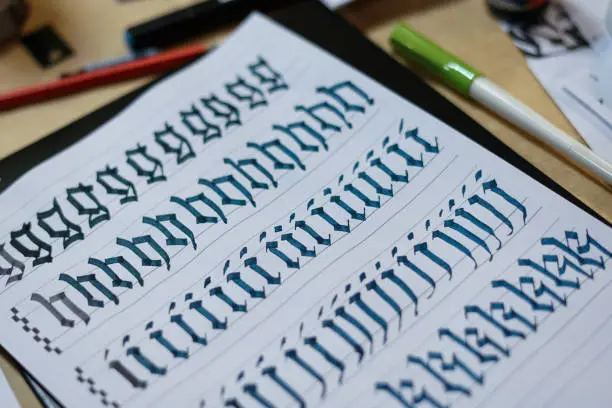 ggggggggggg
hhhhhhhhhhhh
iiiiiiiiiiiiii
jjjjjjjjjjjjj
kkkkkkkk